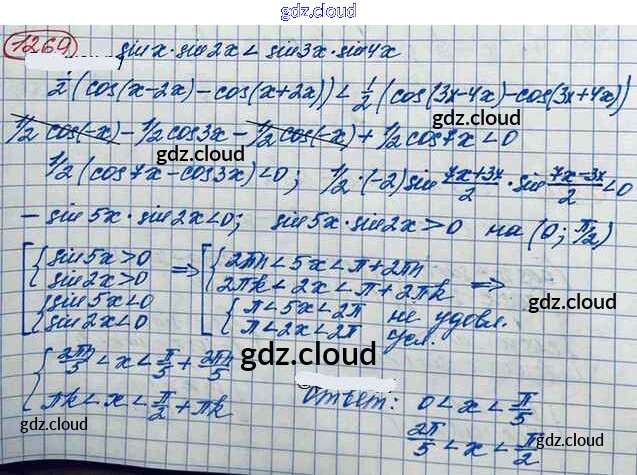 gdz.cloud
1269 sinx·sin2x < sin3x·sin4x
1/2(cos(x-2x)-cos(x+2x)) < 1/2(cos(3x-4x)-cos(3x+4x))
1/2 cos(-x) - 1/2 cos3x - 1/2 cos(-x) + 1/2 cos7x < 0
gdz.cloud gdz.cloud
1/2(cos7x-cos3x)<0; 1/2·(-2)sin (7x+3x)/2 · sin (7x-3x)/2 < 0
- sin5x·sin2x<0; sin5x·sin2x>0 на (0; π/2)
[ { sin5x>0 sin2x>0 { sin5x<0 sin2x<0 => [ { 2πn<5x<π+2πn 2πk<2x<π+2πk { π<5x<2π π<2x<2π не удовл. усл. =>
gdz.cloud
gdz.cloud
{ 2πn/5 < x < π/5 + 2πn/5
πk < x < π/2 + πk
Ответ: 0 < x < π/5
2π/5 < x < π/2
gdz.cloud
gdz.cloud
gdz.cloud